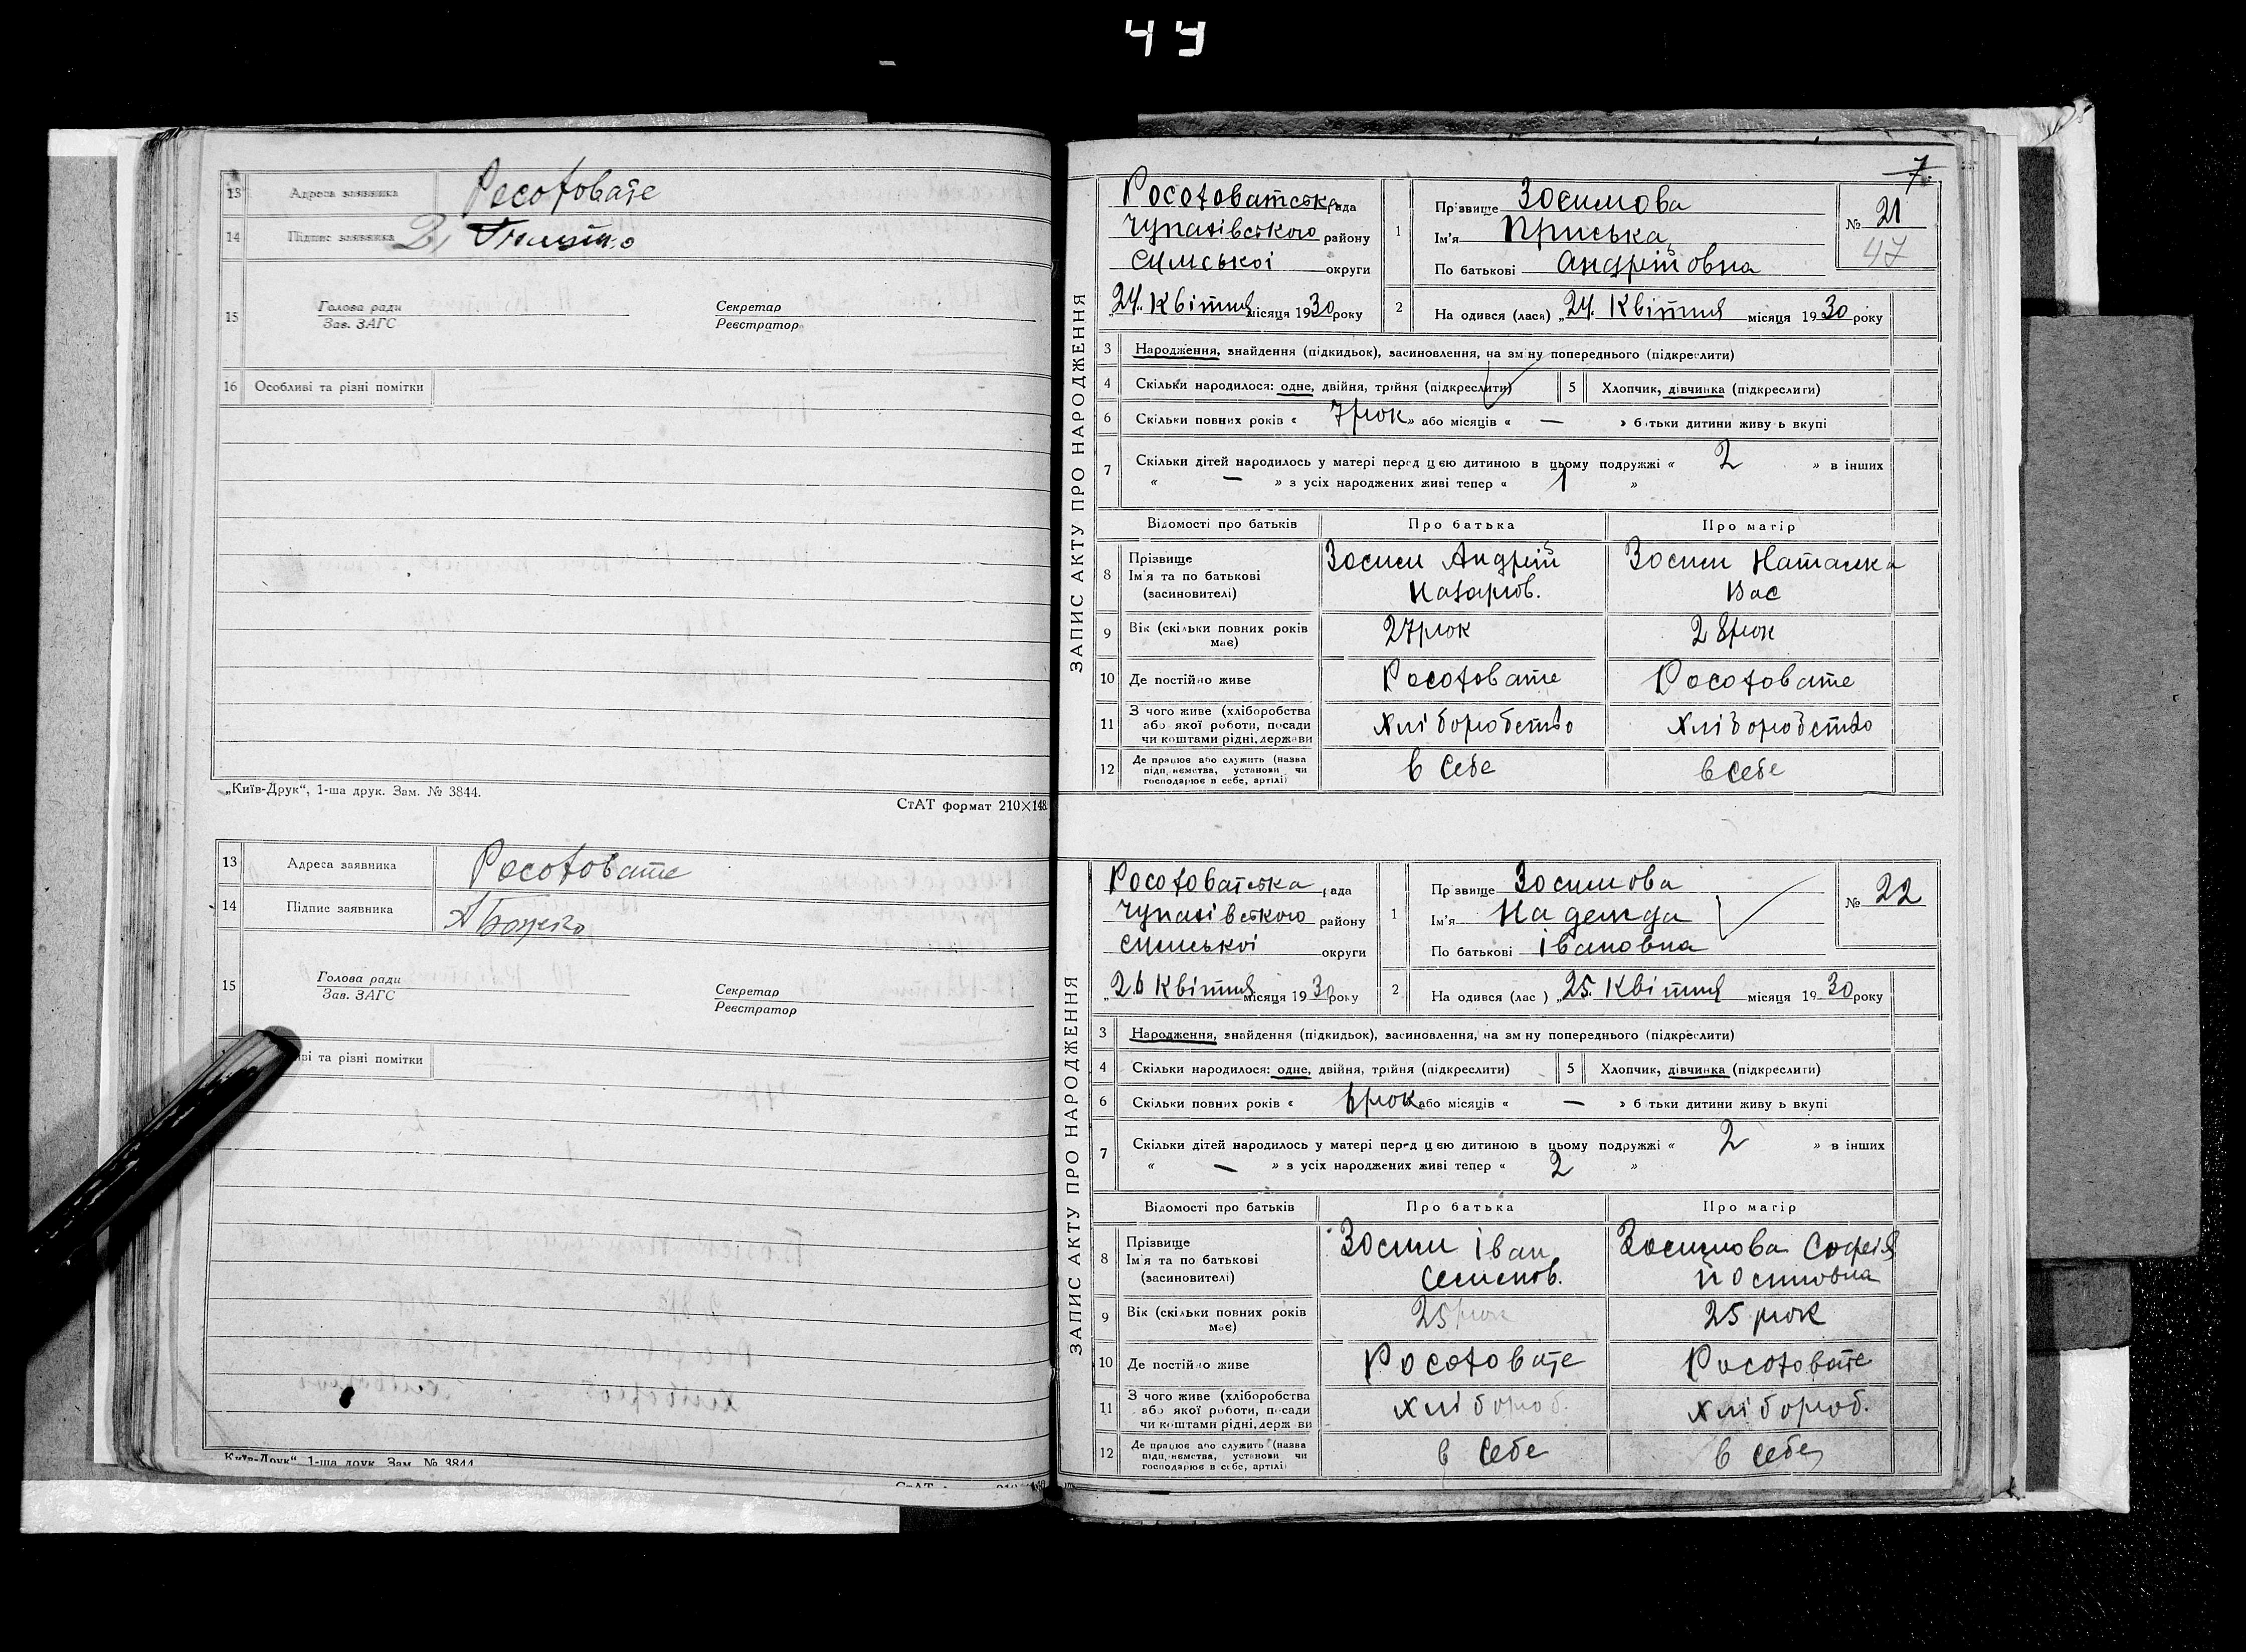 44
13 Адреса заявника Рособовате
14 Підпис заявника
15 Голова ради
Зав. ЗАГС
Секретар
Реєстратор
16 Особливі та різні помітки
„Київ-Друк“, 1-ша друк. Зам. № 3844.
СтАТ формат 210×148
13 Адреса заявника Рособовате
14 Підпис заявника А Божко
15 Голова ради
Зав. ЗАГС
Секретар
Реєстратор
та різні помітки
Київ-Друк“, 1-ша друк. Зам. № 3844
7
ЗАПИС АКТУ ПРО НАРОДЖЕННЯ
Рособоватська рада
Чупахівського району
Сумської округи
„24„ Квітня місяця 1930 року
1 Прізвище Зосимова
Ім'я Приська
По батькові Андрійовна
№ 21
47
2 На одився (лася) „24. Квітня місяця 1930 року
3 Народження, знайдення (підкидьок), засиновлення, на зміну попереднього (підкреслити)
4 Скільки народилося: одне, двійня, трійня (підкреслити) 5 Хлопчик, дівчинка (підкреслити)
6 Скільки повних років « 7 рок » або місяців « — » батьки дитини живуь вкупі
7 Скільки дітей народилось у матері перед цією дитиною в цьому подружжі « 2 » в інших
« — » з усіх народжених живі тепер « 1 »
Відомості про батьків Про батька Про матір
8 Прізвище
Ім'я та по батькові
(засиновителі)
Зосим Андрій
Назаров.
Зосим Наталка
Вас
9 Вік (скільки повних років має) 27 рок 28 рок
10 Де постійно живе Рособовате Рособовате
11 З чого живе (хліборобства
або якої роботи, посади
чи коштами рідні, держави
хліборобство хліборобство
12 Де працює або служить (назва
підприємства, установи чи
господарює в себе, артілі)
в себе в себе
ЗАПИС АКТУ ПРО НАРОДЖЕННЯ
Рособоватська рада
Чупахівського району
Сумської округи
„26 Квітня місяця 1930 року
1 Прізвище Зосимова
Ім'я Надежда
По батькові Івановна
№ 22
2 На одився (лас ) „25. Квітня місяця 1930 року
3 Народження, знайдення (підкидьок), засиновлення, на зміну попереднього (підкреслити)
4 Скільки народилося: одне, двійня, трійня (підкреслити) 5 Хлопчик, дівчинка (підкреслити)
6 Скільки повних років « 6 рок або місяців « — » батьки дитини живуь вкупі
7 Скільки дітей народилось у матері перед цією дитиною в цьому подружжі « 2 » в інших
« — » з усіх народжених живі тепер « 2 »
Відомості про батьків Про батька Про матір
8 Прізвище
Ім'я та по батькові
(засиновителі)
Зосим Іван
Семенов.
Зосимова Софія
9 Вік (скільки повних років має) 25 рок 25 рок
10 Де постійно живе Рособовате Рособовате
11 З чого живе (хліборобства
або якої роботи, посади
чи коштами рідні, держави
хлібороб. хлібороб.
12 Де працює або служить (назва
підприємства, установи чи
господарює в себе, артілі)
в себе в себе